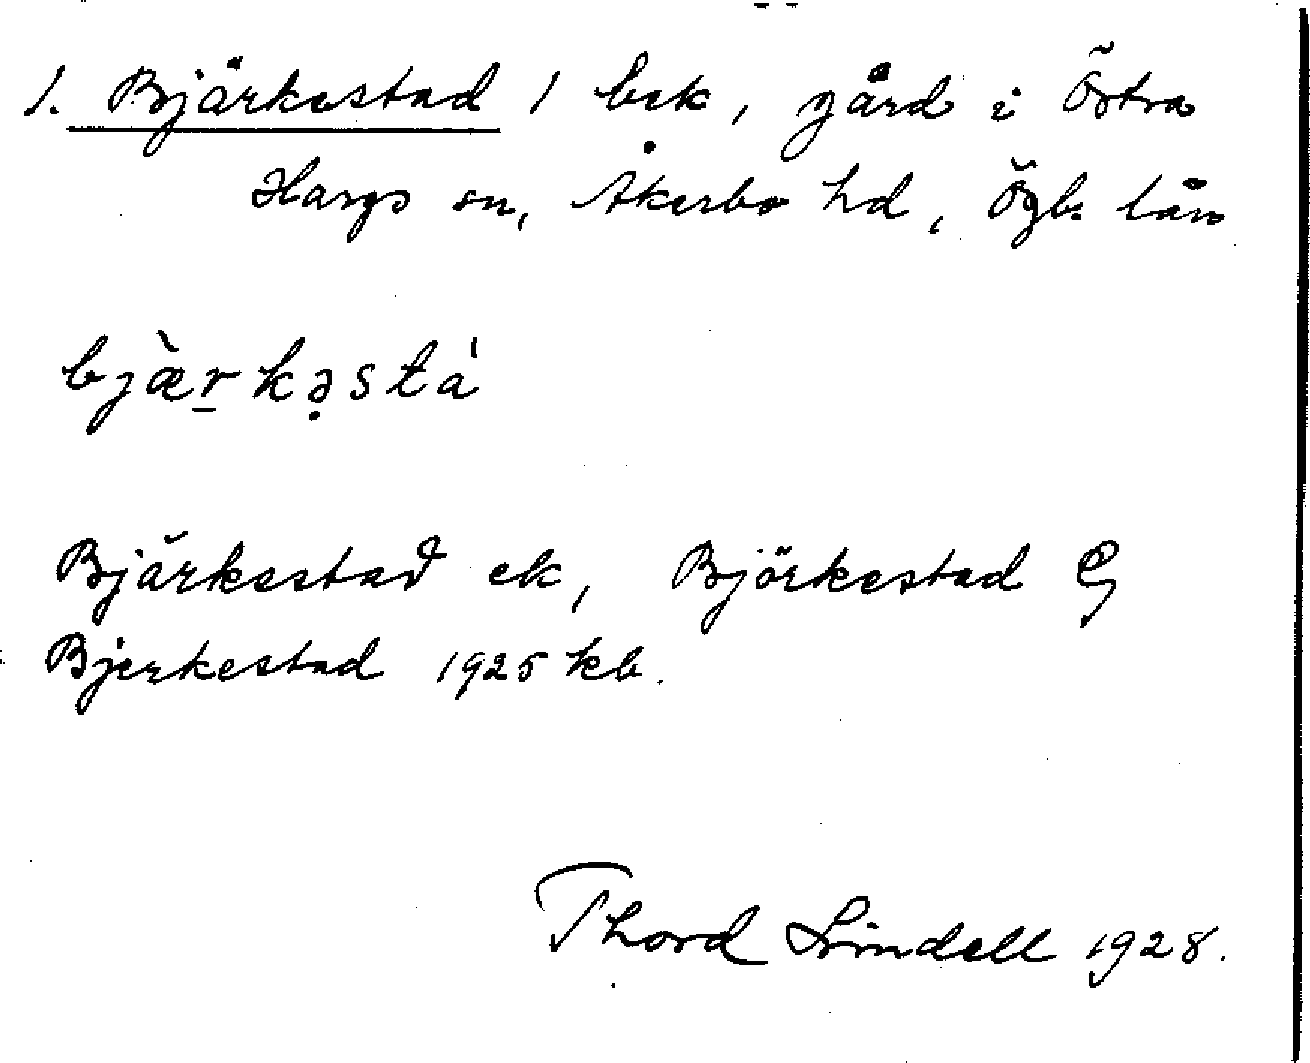 1. Bjärkestad 1 bek, gård i Östra
Hargs sn, Åkerbo hd, Ögb. län
bjæ̀rkəstá
Bjärkestad ek, Björkestad
Bjerkestad 1925 kb.
Thord Lindell 1928.